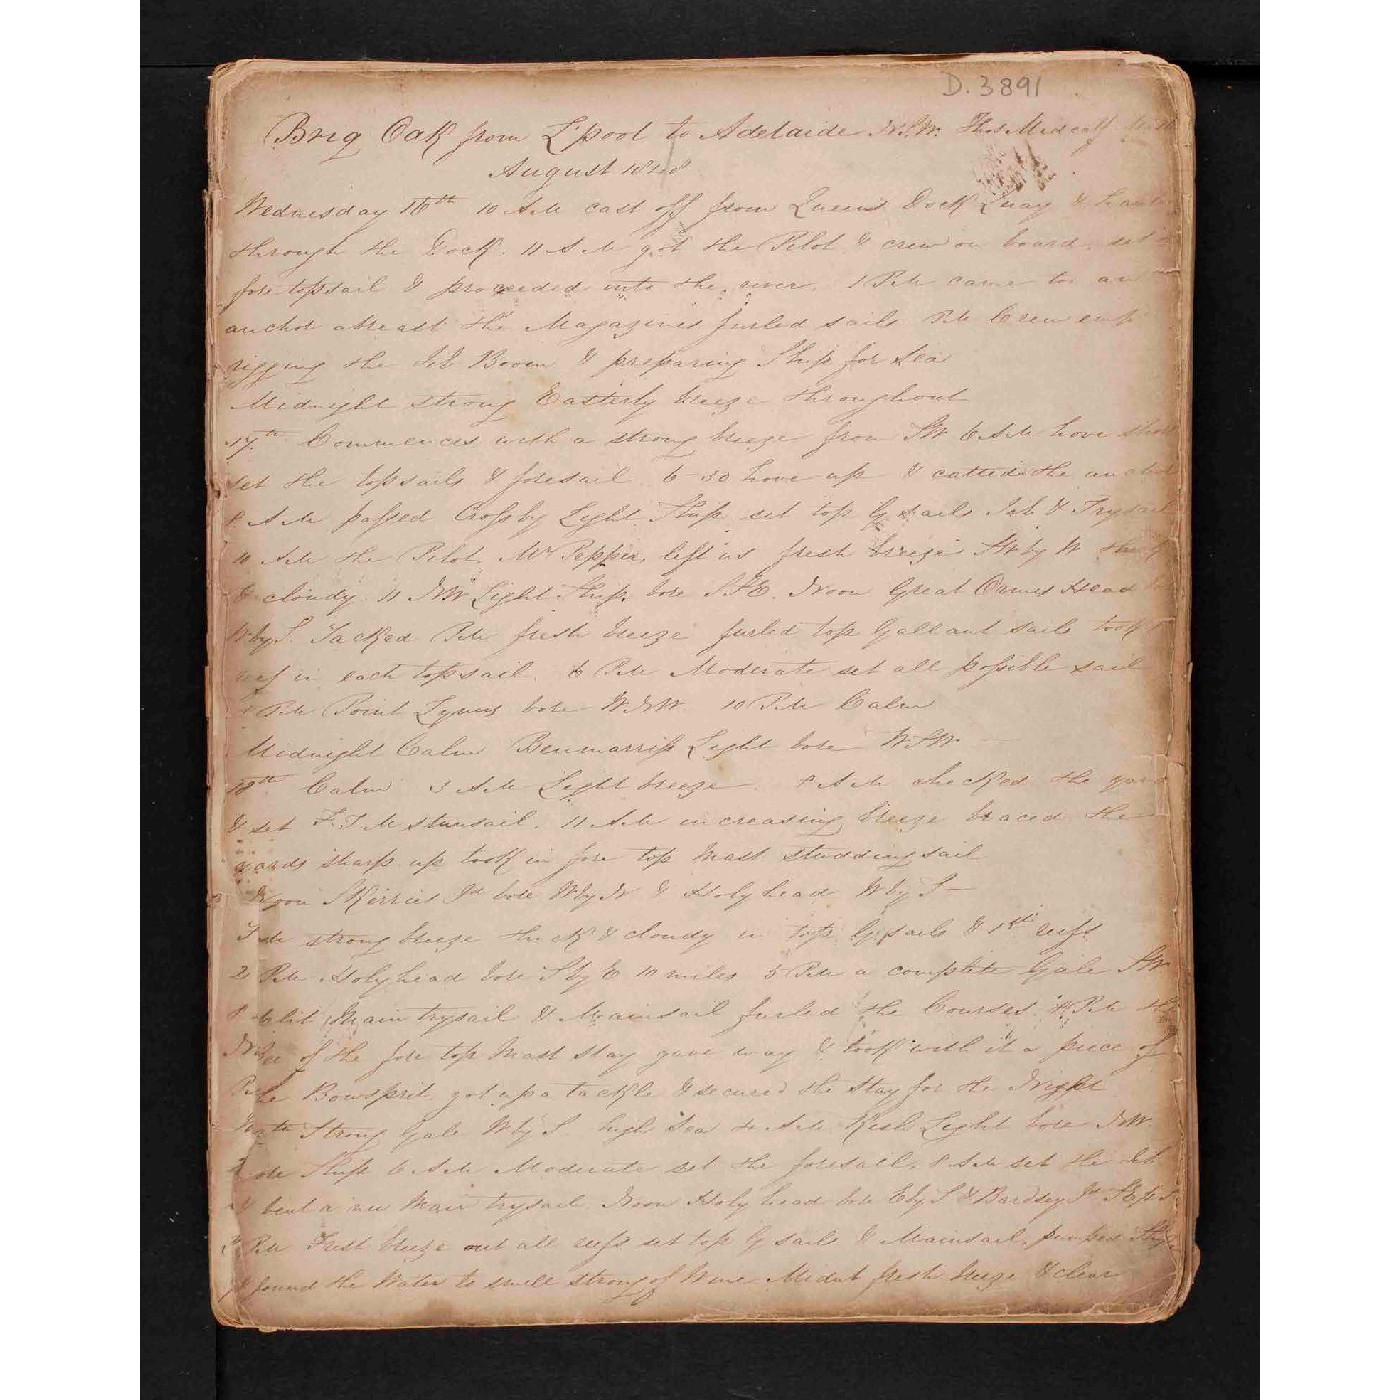 D.3891
Brig Oak from L'pool to Adelaide N.S.W. Thos Midcalf
August 1848
Wednesday 16th 10 AM cast off from Queens Dock Quay &
through the Dock. 11 AM got the Pilot & crew on board. set
fore topsail & proceeded into the river. 1 PM came to an
anchor abreast the Magazines furled sails PM Crew emp
rigging the Jib Boom & preparing Ship for Sea
Midnight strong Easterly breeze throughout
17th Commences with a strong breeze from SW 6 AM hove short
set the topsails & foresail 6-30 hove up & catted the anchor
8 AM passed Crossby Light Ship set top G sails Jib & Trysail
10 AM the Pilot Mr Pepper left us fresh breeze SW by W thick
& cloudy 11 NW Light Ship bore SSE. Noon Great Ormes Head
W by S. Tacked PM fresh breeze furled top Gallant sails took
reef in each topsail. 6 PM Moderate set all possible sail
PM Point Lynus bore WNW 10 PM Calm
Midnight Calm Beaumarriss Light bore WSW
18th Calm 3 AM Light breeze. 8 AM checked the yards
& set F.T.M stunsail. 11 AM increasing breeze braced the
yards sharp up took in fore top Mast studdingsail
Noon Skerries Id bore W by N & Holyhead W by S
PM strong breeze thick & cloudy in top G sails & 1st reefs
2 PM Holyhead bore S by E 10 miles 5 PM a complete Gale SW
split Main trysail & Mainsail furled the Courses. 8 PM the
of the fore top Mast stay gave way & took with it a piece of
the Bowsprit got up a tackle & secured the stay for the Night
Strong Gale W by S. high Sea 4 AM Kish Light bore NW.
Ship 6 AM Moderate set the foresail. 8 AM set the Jib
& bent a new Main trysail Noon Holyhead bore E by S & Bardsey Id
PM Fresh breeze out all reefs set top G sails & Mainsail, pumped Ship
& found the Water to smell strong of Wine Midnt fresh breeze & clear